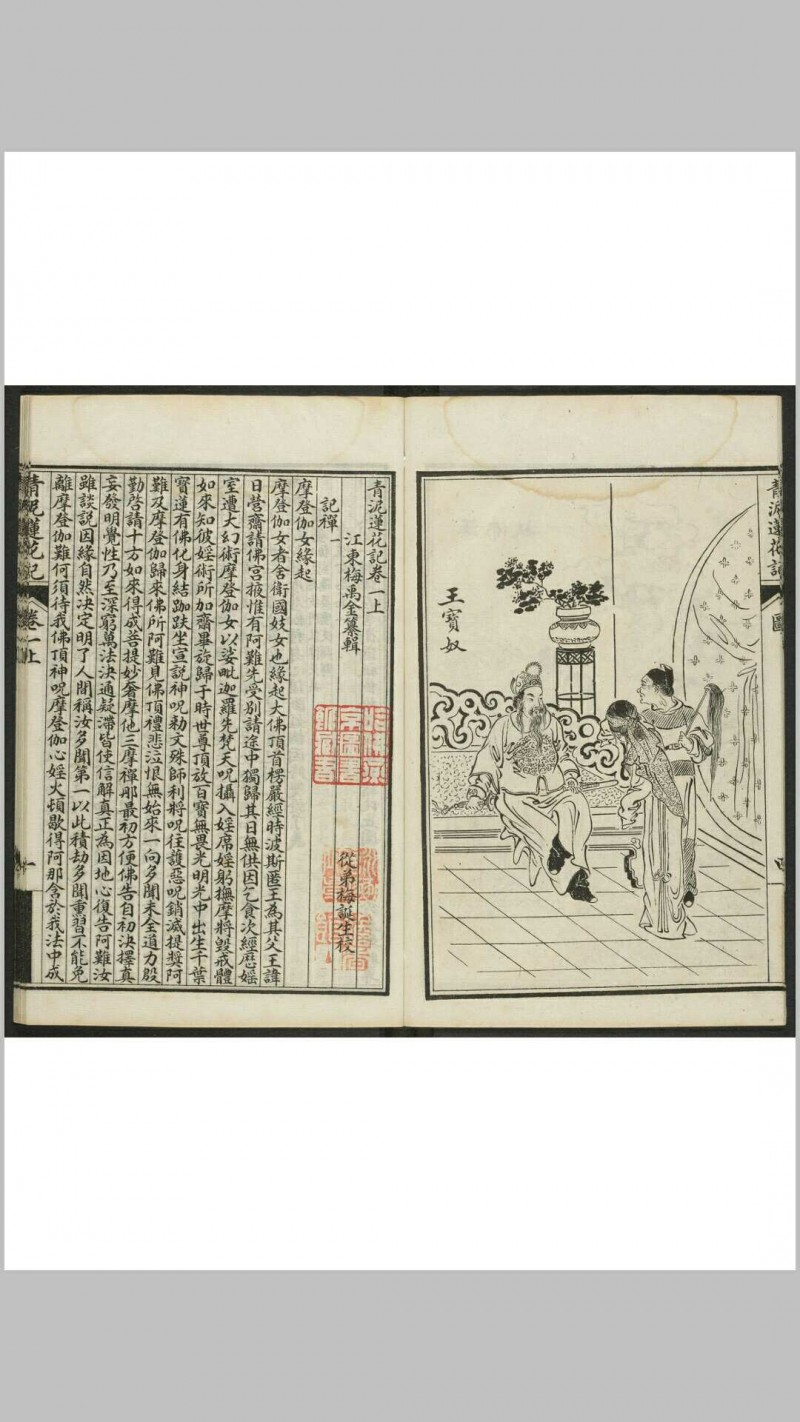 青泥蓮花記
圖
四
王寶奴
青泥蓮花記卷一上
江東梅禹金纂輯
從弟梅誕生校
記禪一
摩登伽女緣起
摩登伽女者舍衛國妓女也緣起大佛頂首楞嚴經時波斯匿王為其父王諱
日營齋請佛宮掖惟有阿難先受別請途中獨歸其日無供因乞食次經歷婬
室遭大幻術摩登伽女以娑毗迦羅先梵天呪攝入婬席婬躬撫摩將毀戒體
如來知彼婬術所加齋畢旋歸于時世尊頂放百寶無畏光明光中出生千葉
寶蓮有佛化身結跏趺坐宣説神呪勅文殊師利將呪往護惡呪銷滅提奬阿
難及摩登伽歸來佛所阿難見佛頂禮悲泣恨無始來一向多聞未全道力殷
勤啓請十方如來得成菩提妙奢摩他三摩禪那最初方便佛告自初決擇真
妄發明覺性乃至深窮萬法決通疑滯皆使信解真正為因地心復告阿難汝
雖談説因緣自然决定明了人間稱汝多聞第一以此積劫多聞熏習不能免
離摩登伽難何須待我佛頂神呪摩登伽心婬火頓歇得阿那含於我法中成
青泥蓮花記
卷一上
一